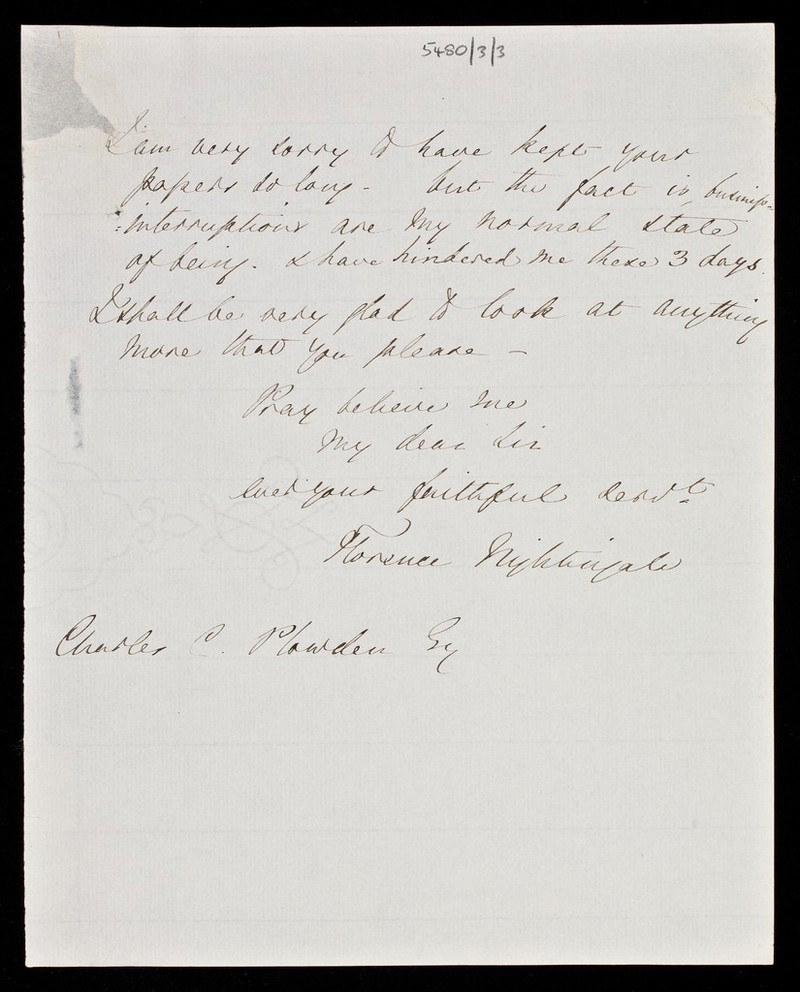 5480/3/3
I am very sorry to have kept your
papers so long - but the fact is, business-
:interruptions are my normal state
of being. & have hindered me these 3 days.
I shall be very glad to look at anything
more that you please -
Pray believe me
my dear Sir
ever your faithful servt
Florence Nightingale
Charles C. Plowden Esq